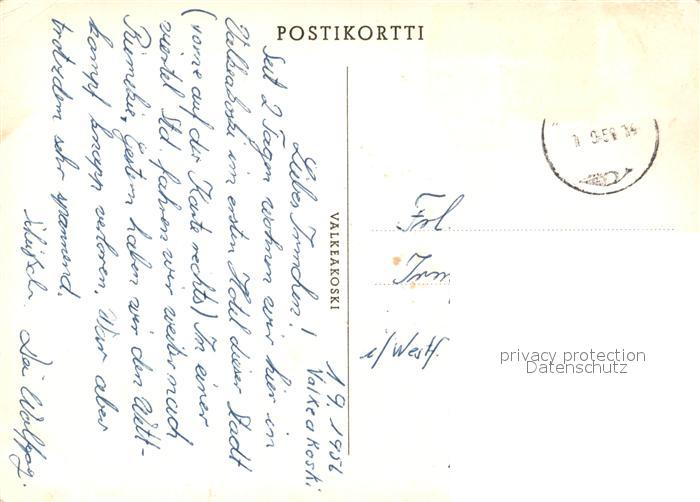 POSTIKORTTI
1.9.1956
Valkeakoski
Liebes Irmchen!
Seit 2 Tagen wohnen wir hier in
Valkeakoski im ersten Hotel dieser Stadt
(vorne auf der Karte rechts) In einer
viertel Std. fahren wir weiter nach
Gestern haben wir den Wett-
kampf knapp verloren. War aber
trotzdem sehr spannend.
Dei Wolfgang.
VALKEAKOSKI
Frl.
Irm
i/Westf.
privacy protection
Datenschutz